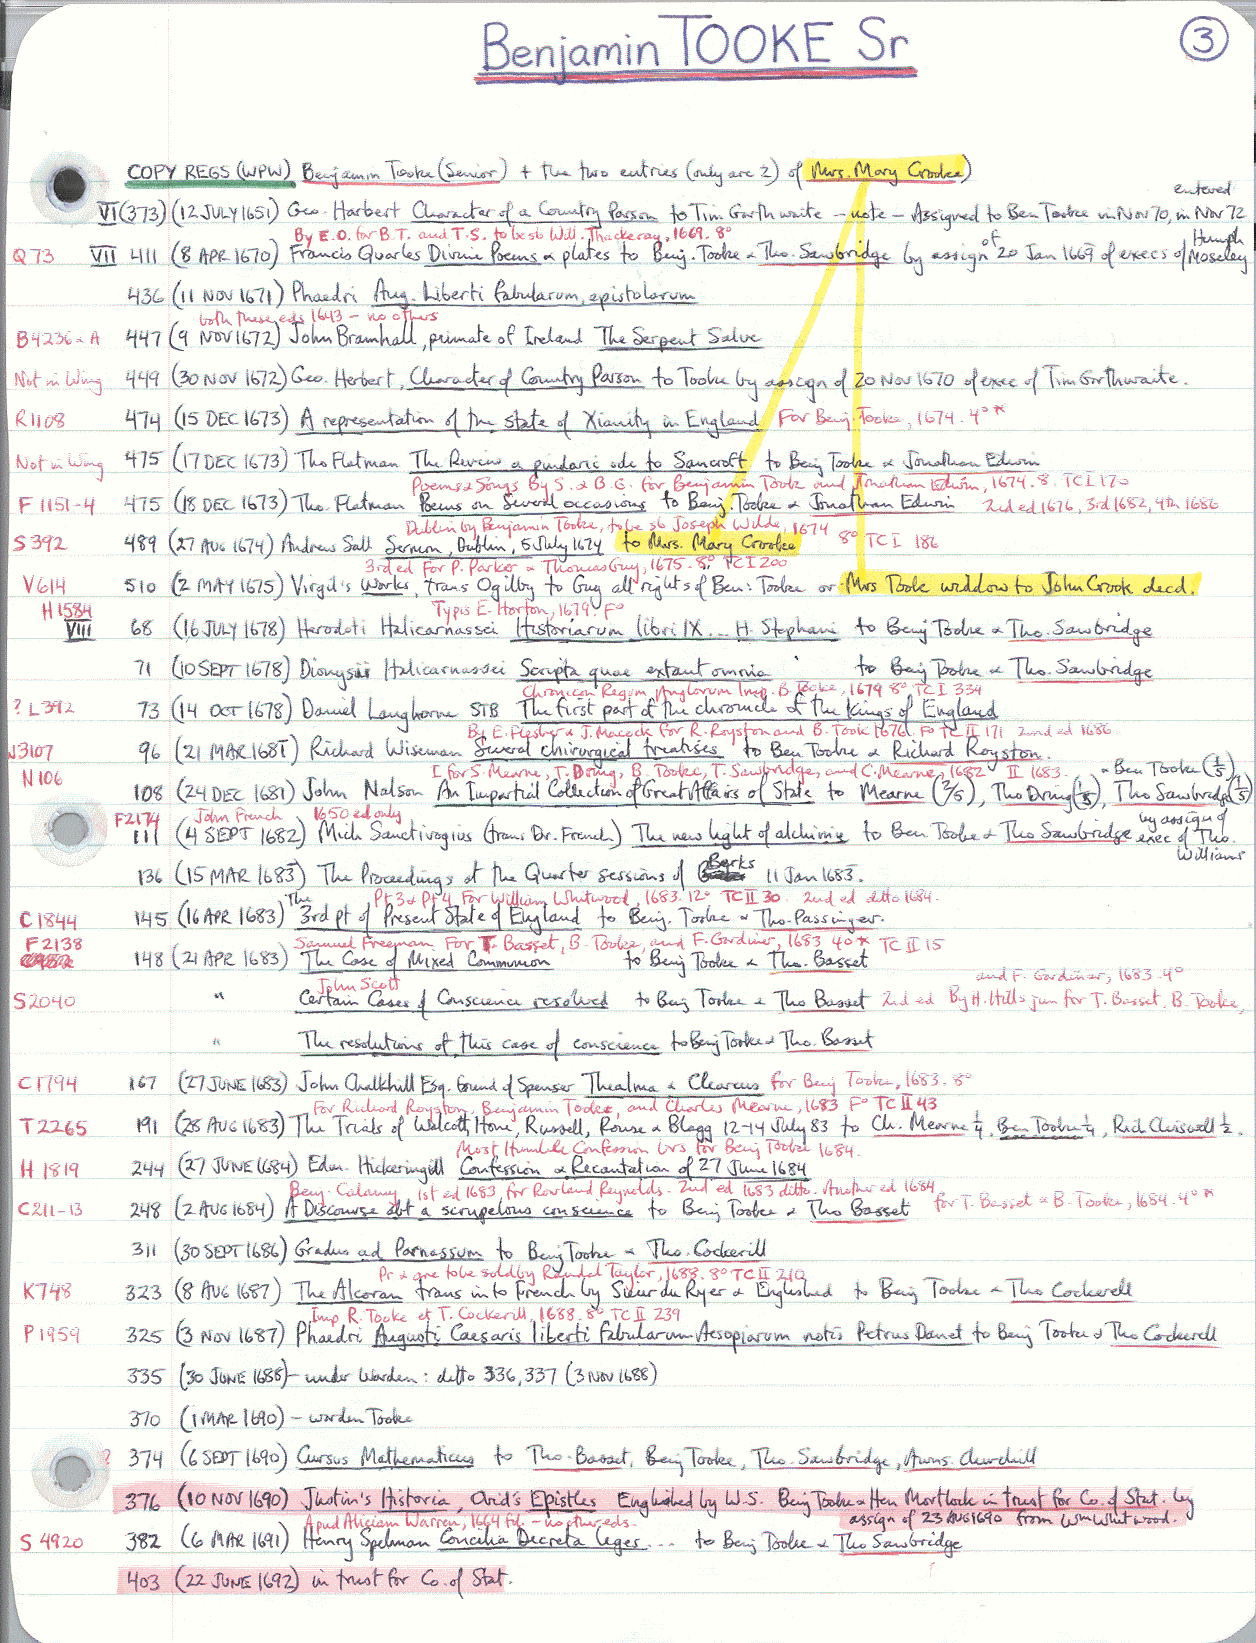 Benjamin TOOKE Sr
3
COPY REGS (WPW) Benjamin Tooke (Senior) + the two entries (only are 2) of Mrs. Mary Crooke)
entered
VI (373) (12 JULY 1651) Geo. Harbert Character of a Country Parson to Tim Garthwaite - note - Assigned to Ben Tooke in Nov 70, in Nov 72
By E.O. for B.T. and T.S. to be sb Will. Thackeray, 1669. 8°
Q73 VII 411 (8 APR 1670) Francis Quarles Divine Poems & plates to Benj. Tooke & Tho. Sawbridge by assign of 20 Jan 1669 of execs of Humph Moseley
436 (11 NOV 1671) Phaedri Aug. Liberti fabularum, epistolarum
both these eds 1643 - no others
B4236-A 447 (9 NOV 1672) John Bramhall, primate of Ireland The Serpent Salve
Not in Wing 449 (30 NOV 1672) Geo. Herbert, Character of Country Parson to Tooke by assign of 20 NOV 1670 of exec of Tim Garthwaite.
R1108 474 (15 DEC 1673) A representation of the state of Xianity in England For Benj. Tooke, 1674. 4°*
Not in Wing 475 (17 DEC 1673) Tho Flatman The Review a pindaric ode to Sancroft to Benj Tooke & Jonathan Edwin
Poems & Songs By S. & B.G. for Benjamin Took and Jonathan Edwin, 1674. 8. TC I 170
F1151-4 475 (18 DEC 1673) Tho. Flatman Poems on Several occasions to Benj. Tooke & Jonathan Edwin 2nd ed 1676, 3rd 1682, 4th 1686
Dublin by Benjamin Tooke, to be sb Joseph Wilde, 1674
S392 489 (27 AUG 1674) Andrew Sall Sermon, Dublin, 5 July 1674 to Mrs. Mary Crooke 8° TC I 186
3rd ed For P. Parker & Thomas Guy, 1675. 8° TC I 200
V614 510 (2 MAY 1675) Virgil's Works, trans Ogilby to Guy all rights of Ben: Tooke or Mrs Tooke widdow to John Crook decd.
H1584 Typis E. Horton, 1679. F°
VIII 68 (16 JULY 1678) Herodoti Halicarnassei Historiarum libri IX ... H. Stephani to Benj Tooke & Tho. Sawbridge
71 (10 SEPT 1678) Dionysii Halicarnassei Scripta quae extant omnia to Benj Tooke & Tho. Sawbridge
Chronicon Regum Anglorum Imp. B. Tooke, 1679 8° TC I 334
? L392 73 (14 OCT 1678) Daniel Langhorne STB The first part of the chronicle of the Kings of England
By E. Flesher & J. Macock for R. Royston and B. Took 1676. F° TC II 171 2nd ed 1686.
W3107 96 (21 MAR 1681) Richard Wiseman Several chirurgical treatises to Ben Tooke & Richard Royston.
N106 I for S. Mearne, T. Dring, B. Tooke, T. Sawbridge, and C. Mearne, 1682 II 1683. & Ben Tooke (1/5)
108 (24 DEC 1681) John Nalson An Impartial Collection of Great Affairs of State to Mearne (2/5), Tho Dring (1/5), Tho Sawbridge (1/5)
F2174 John French 1650 ed only
111 (4 SEPT 1682) Mich Sandivogius (trans Dr. French) The new light of alchimie to Ben Tooke & Tho Sawbridge by assign of exec of Tho. Williams
136 (15 MAR 1683) The Proceedings at the Quarter sessions of Berks 11 Jan 1683.
Pt 3 & Pt 4 For William Whitwood, 1683. 12° TC II 30. 2nd ed ditto 1684.
C1844 145 (16 APR 1683) The 3rd pt of Present State of England to Benj. Tooke & Tho. Passinger.
F2138 Samuel Freeman For T. Basset, B. Tooke, and F. Gardiner, 1683 4°* TC II 15
148 (21 APR 1683) The Case of Mixed Communion to Benj Tooke & Tho. Basset
John Scott and F. Gardiner, 1683. 4°
S2040 " Certain Cases of Conscience resolved to Benj Tooke & Tho Basset 2nd ed By H. Hills jun for T. Basset, B. Tooke,
" The resolutions of this case of conscience to Benj Tooke & Tho. Basset
C1794 167 (27 JUNE 1683) John Chalkhill Esq. friend of Spenser Thealma & Clearcus for Benj Tooke, 1683. 8°
For Richard Royston, Benjamin Tooke, and Charles Mearne, 1683 F° TC II 43
T2265 191 (28 AUG 1683) The Trials of Walcott, Hone, Russell, Rouse & Blagg 12-14 July 83 to Ch. Mearne 1/4, Ben Tooke 1/4, Rich Chiswell 1/2.
Most Humble Confession brs for Benj Tooke 1684.
H1819 244 (27 JUNE 1684) Edm. Hickeringill Confession & Recantation of 27 June 1684
Benj. Calamy 1st ed 1683, for Rowland Reynolds. 2nd ed 1683 ditto. Another ed 1684
C211-13 248 (2 AUG 1684) A Discourse abt a scrupelous conscience to Benj Tooke & Tho Basset for T. Basset & B. Tooke, 1684. 4°*
311 (30 SEPT 1686) Gradus ad Parnassum to Benj Tooke & Tho. Cockerill
Pr & are to be sold by Randal Taylor, 1688. 8° TC II 210
K748 323 (8 AUG 1687) The Alcoran trans into French by Sieur du Ryer & Englished to Benj Tooke & Tho Cockerell
Imp R. Tooke et T. Cockerill, 1688. 8° TC II 239
P1959 325 (3 NOV 1687) Phaedri Augusti Caesaris liberti fabularum Aesopiarum notis Petrus Danet to Benj Tooke & Tho Cockerell
335 (30 JUNE 1688) - under Warden: ditto 336, 337 (3 NOV 1688)
370 (1 MAR 1690) - warden Tooke
? 374 (6 SEPT 1690) Cursus Mathematicus to Tho. Basset, Benj Tooke, Tho. Sawbridge, Awns. Churchill
376 (10 NOV 1690) Justin's Historia, Ovid's Epistles Englished by W.S. Benj Tooke & Hen Mortlock in trust for Co. of Stat. by
Apud Aliciam Warren, 1664 fol. - no other eds. assign of 23 AUG 1690 from Wm Whitwood.
S4920 382 (6 MAR 1691) Henry Spelman Concilia Decreta Leges ... to Benj Tooke & Tho Sawbridge
403 (22 JUNE 1692) in trust for Co. of Stat.